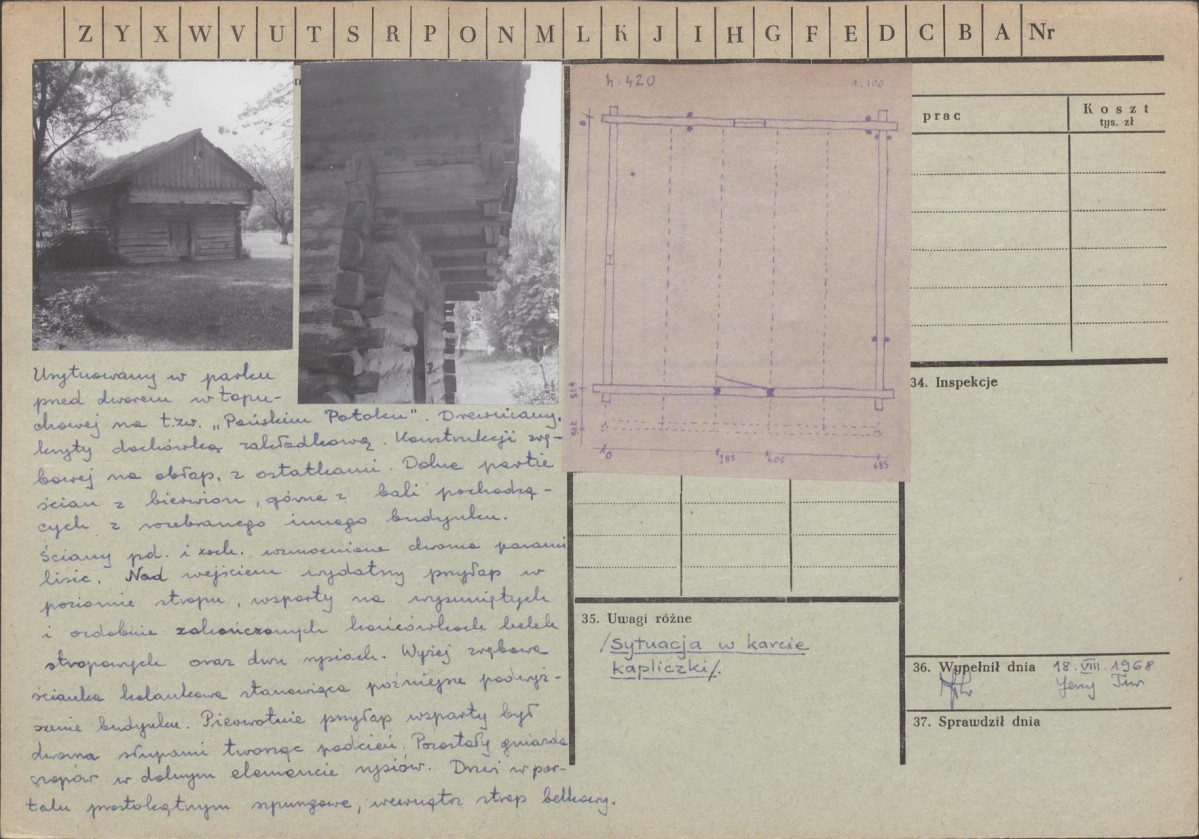 Z Y X W V U T S R P O N M L K J I H G F E D C B A Nr
h. 420
1:100
prac
Koszt
tys. zł
185
405
485
34. Inspekcje
Usytuowany w parku
przed dworem w Łopu-
chowej na t.zw. „Pańskim Potoku". Drewniany,
kryty dachówką zakładkową. Konstrukcji zrę-
bowej na obłap, z ostatkami. Dolne partie
ścian z bierwion, górne z bali pochodzą-
cych z rozebranego innego budynku.
Ściany pd. i zach. wzmocnione dwoma parami
lisic. Nad wejściem wydatny przyłap w
poziomie stropu, wsparty na wysuniętych
i ozdobnie zakończonych końcówkach belek
stropowych oraz dwu rysiach. Wyżej zrębowa
ścianka kolankowa stanowiąca późniejsze podwyż-
szenie budynku. Pierwotnie przyłap wsparty był
dwoma słupami tworząc podcień. Pozostały gniazda
czopów w dolnym elemencie rysiów. Drzwi w por-
talu prostokątnym spungowe, wewnątrz strop belkowy.
35. Uwagi różne
/Sytuacja w karcie
kapliczki/.
36. Wypełnił dnia 18.VIII.1968
Jerzy
37. Sprawdził dnia